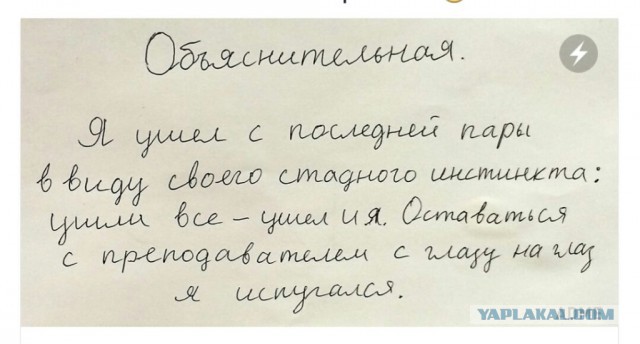 Объяснительная.
Я ушел с последней пары
в виду своего стадного инстинкта:
ушли все – ушел и я. Оставаться
с преподавателем с глазу на глаз
я испугался.
YAPLAKAL.COM